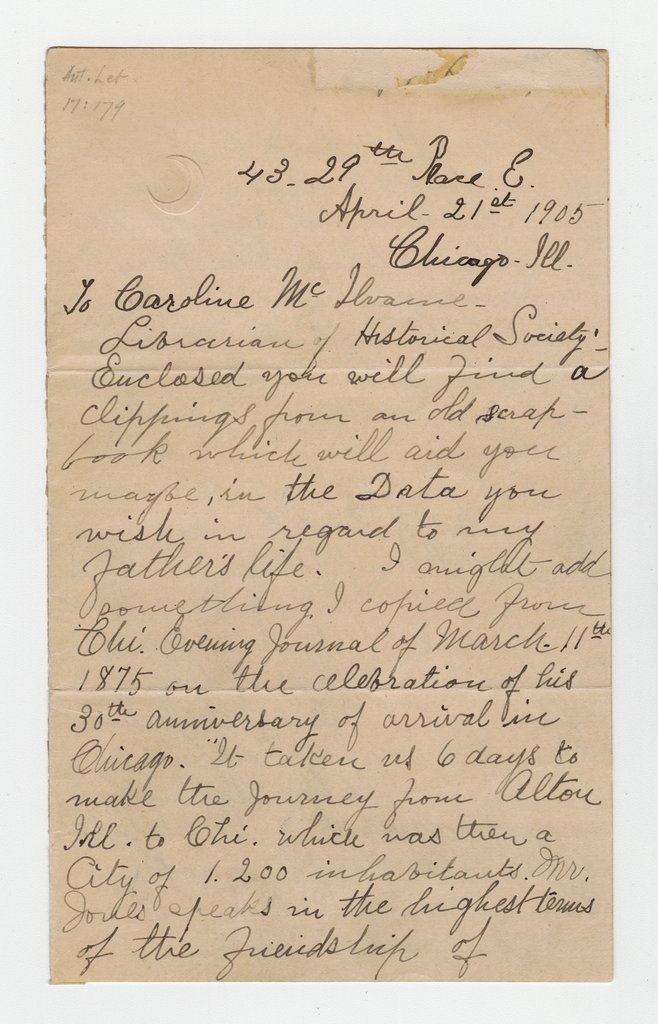 Aut. Let
17:179
43-29th Place. E.
April-21st 1905
Chicago-Ill.
To Caroline Mc Ilvaine-
Librarian of Historical Society:-
Enclosed you will find a
clippings from an old scrap-
book which will aid you
maybe, in the Data you
wish in regard to my
father's life. I might add
something I copied from
Chi. Evening Journal of March-11th
1875 on the celebration of his
30th anniversary of arrival in
Chicago. "It taken us 6 days to
make the Journey from Alton
Ill. to Chi. which was then a
City of 1.200 inhabitants. Mr.
Jones speaks in the highest terms
of the friendship of